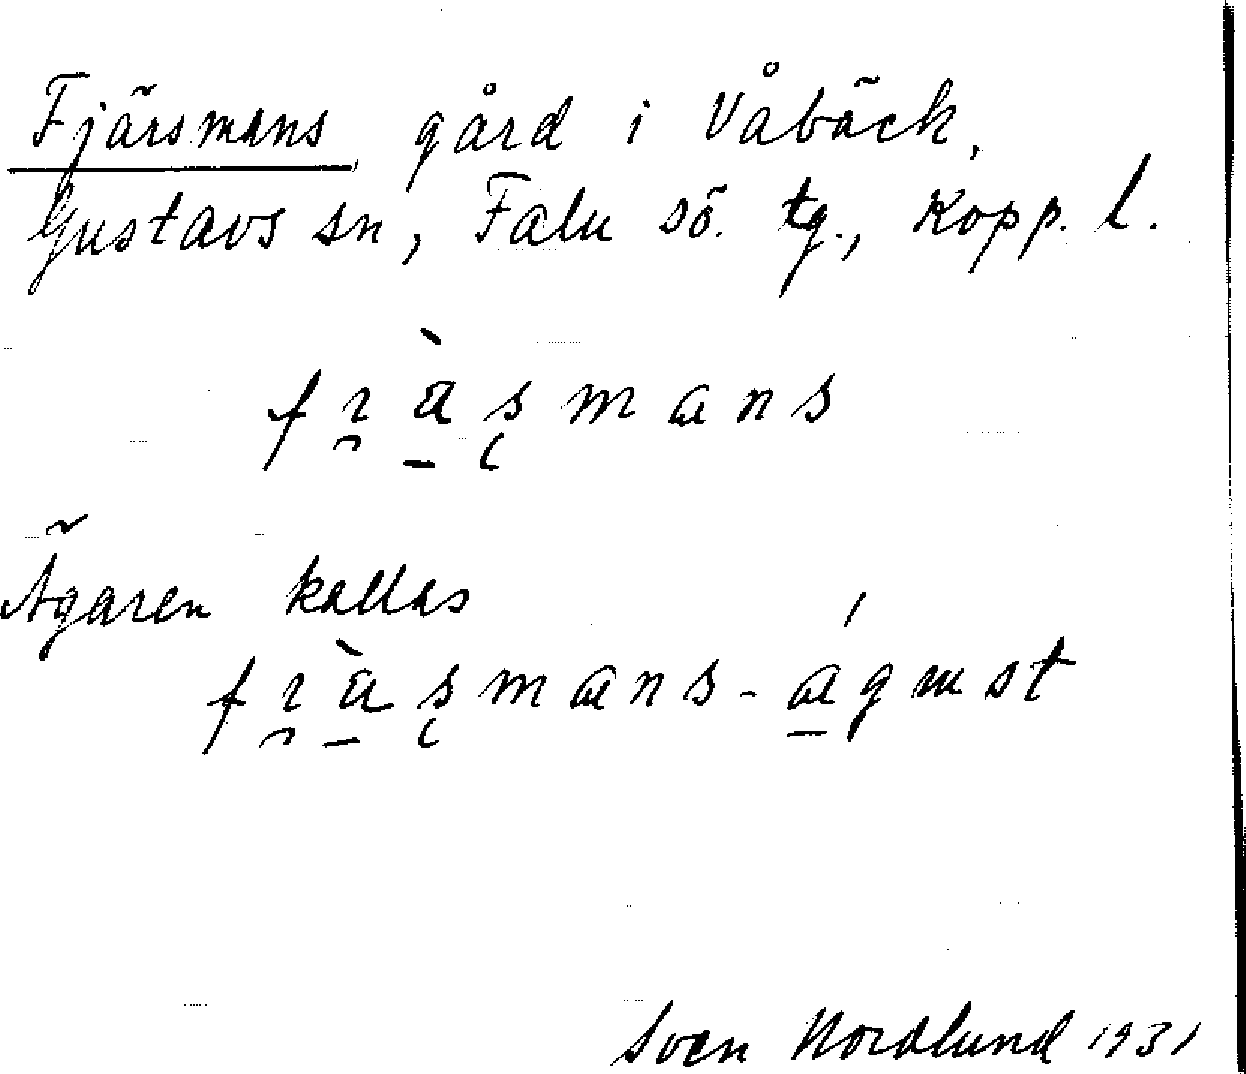 Fjärsmans gård i Våbäck,
Gustavs sn, Falu sö. tg., Kopp. l.
fı̯ä̀ş mans
Ägaren kallas
fı̯ä̀şmans-águst
Sven Nordlund 1931